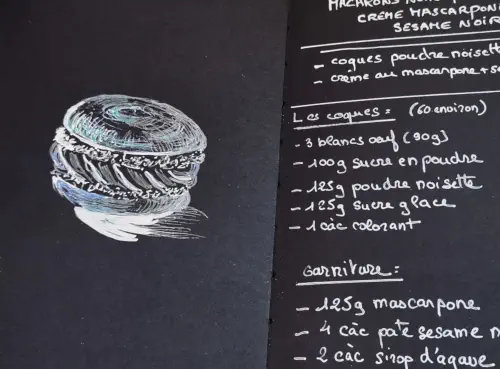 MACARONS
CRÈME MASCARPON
SESAME NOIR
- coques poudre noisett
- crème au mascarpone + s
Les coques : (60 environ)
- 3 blancs oeuf (90g)
- 100g sucre en poudre
- 125g poudre noisette
- 125g sucre glace
- 1 càc colorant
Garniture :
- 125g mascarpone
- 4 càc pâte sesame n
- 2 càc sirop d'agave